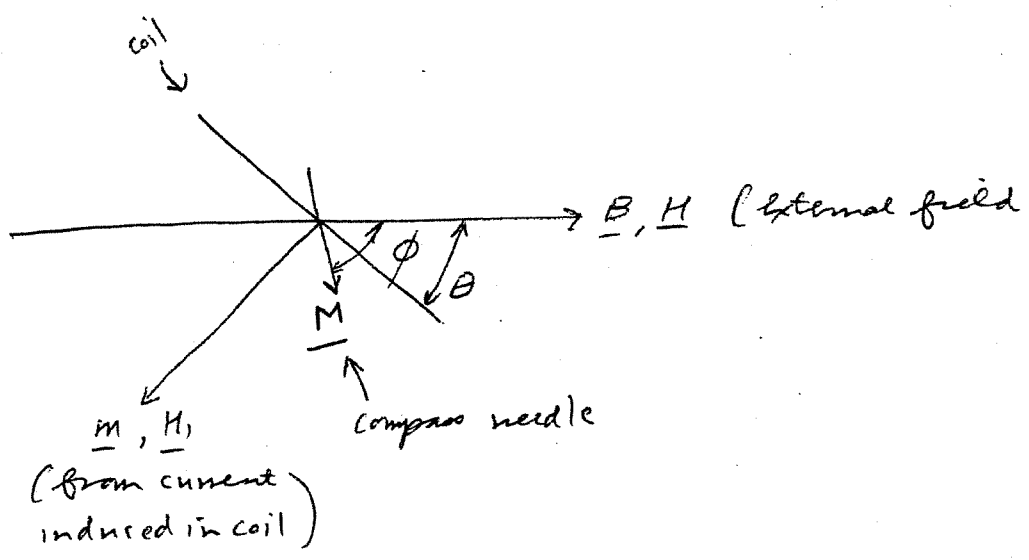 coil
B, H (External field
ϕ
θ
M
compass needle
m, H,
(from current
induced in coil)